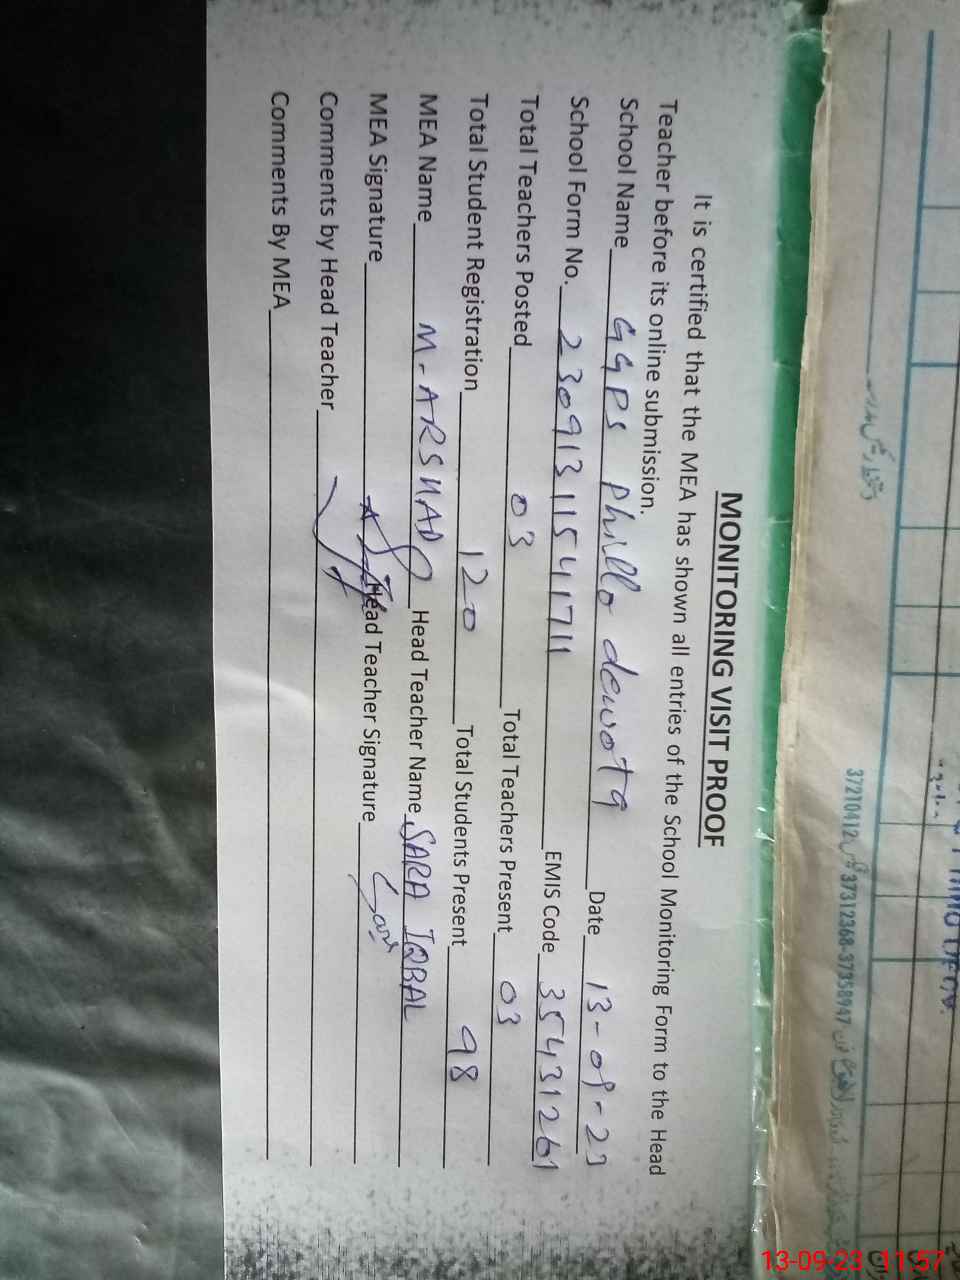 MONITORING VISIT PROOF
It is certified that the MEA has shown all entries of the School Monitoring Form to the Head
Teacher before its online submission.
School Name GGPS Phillo dewota Date 13-09-23
School Form No. 23091311541711 EMIS Code 35431261
Total Teachers Posted 03 Total Teachers Present 03
Total Student Registration 120 Total Students Present 98
MEA Name M-ARSHAD Head Teacher Name SARA IQBAL
MEA Signature Head Teacher Signature
Comments by Head Teacher
Comments By MEA
37210412 37312368-37358947
13-09-23 11:57